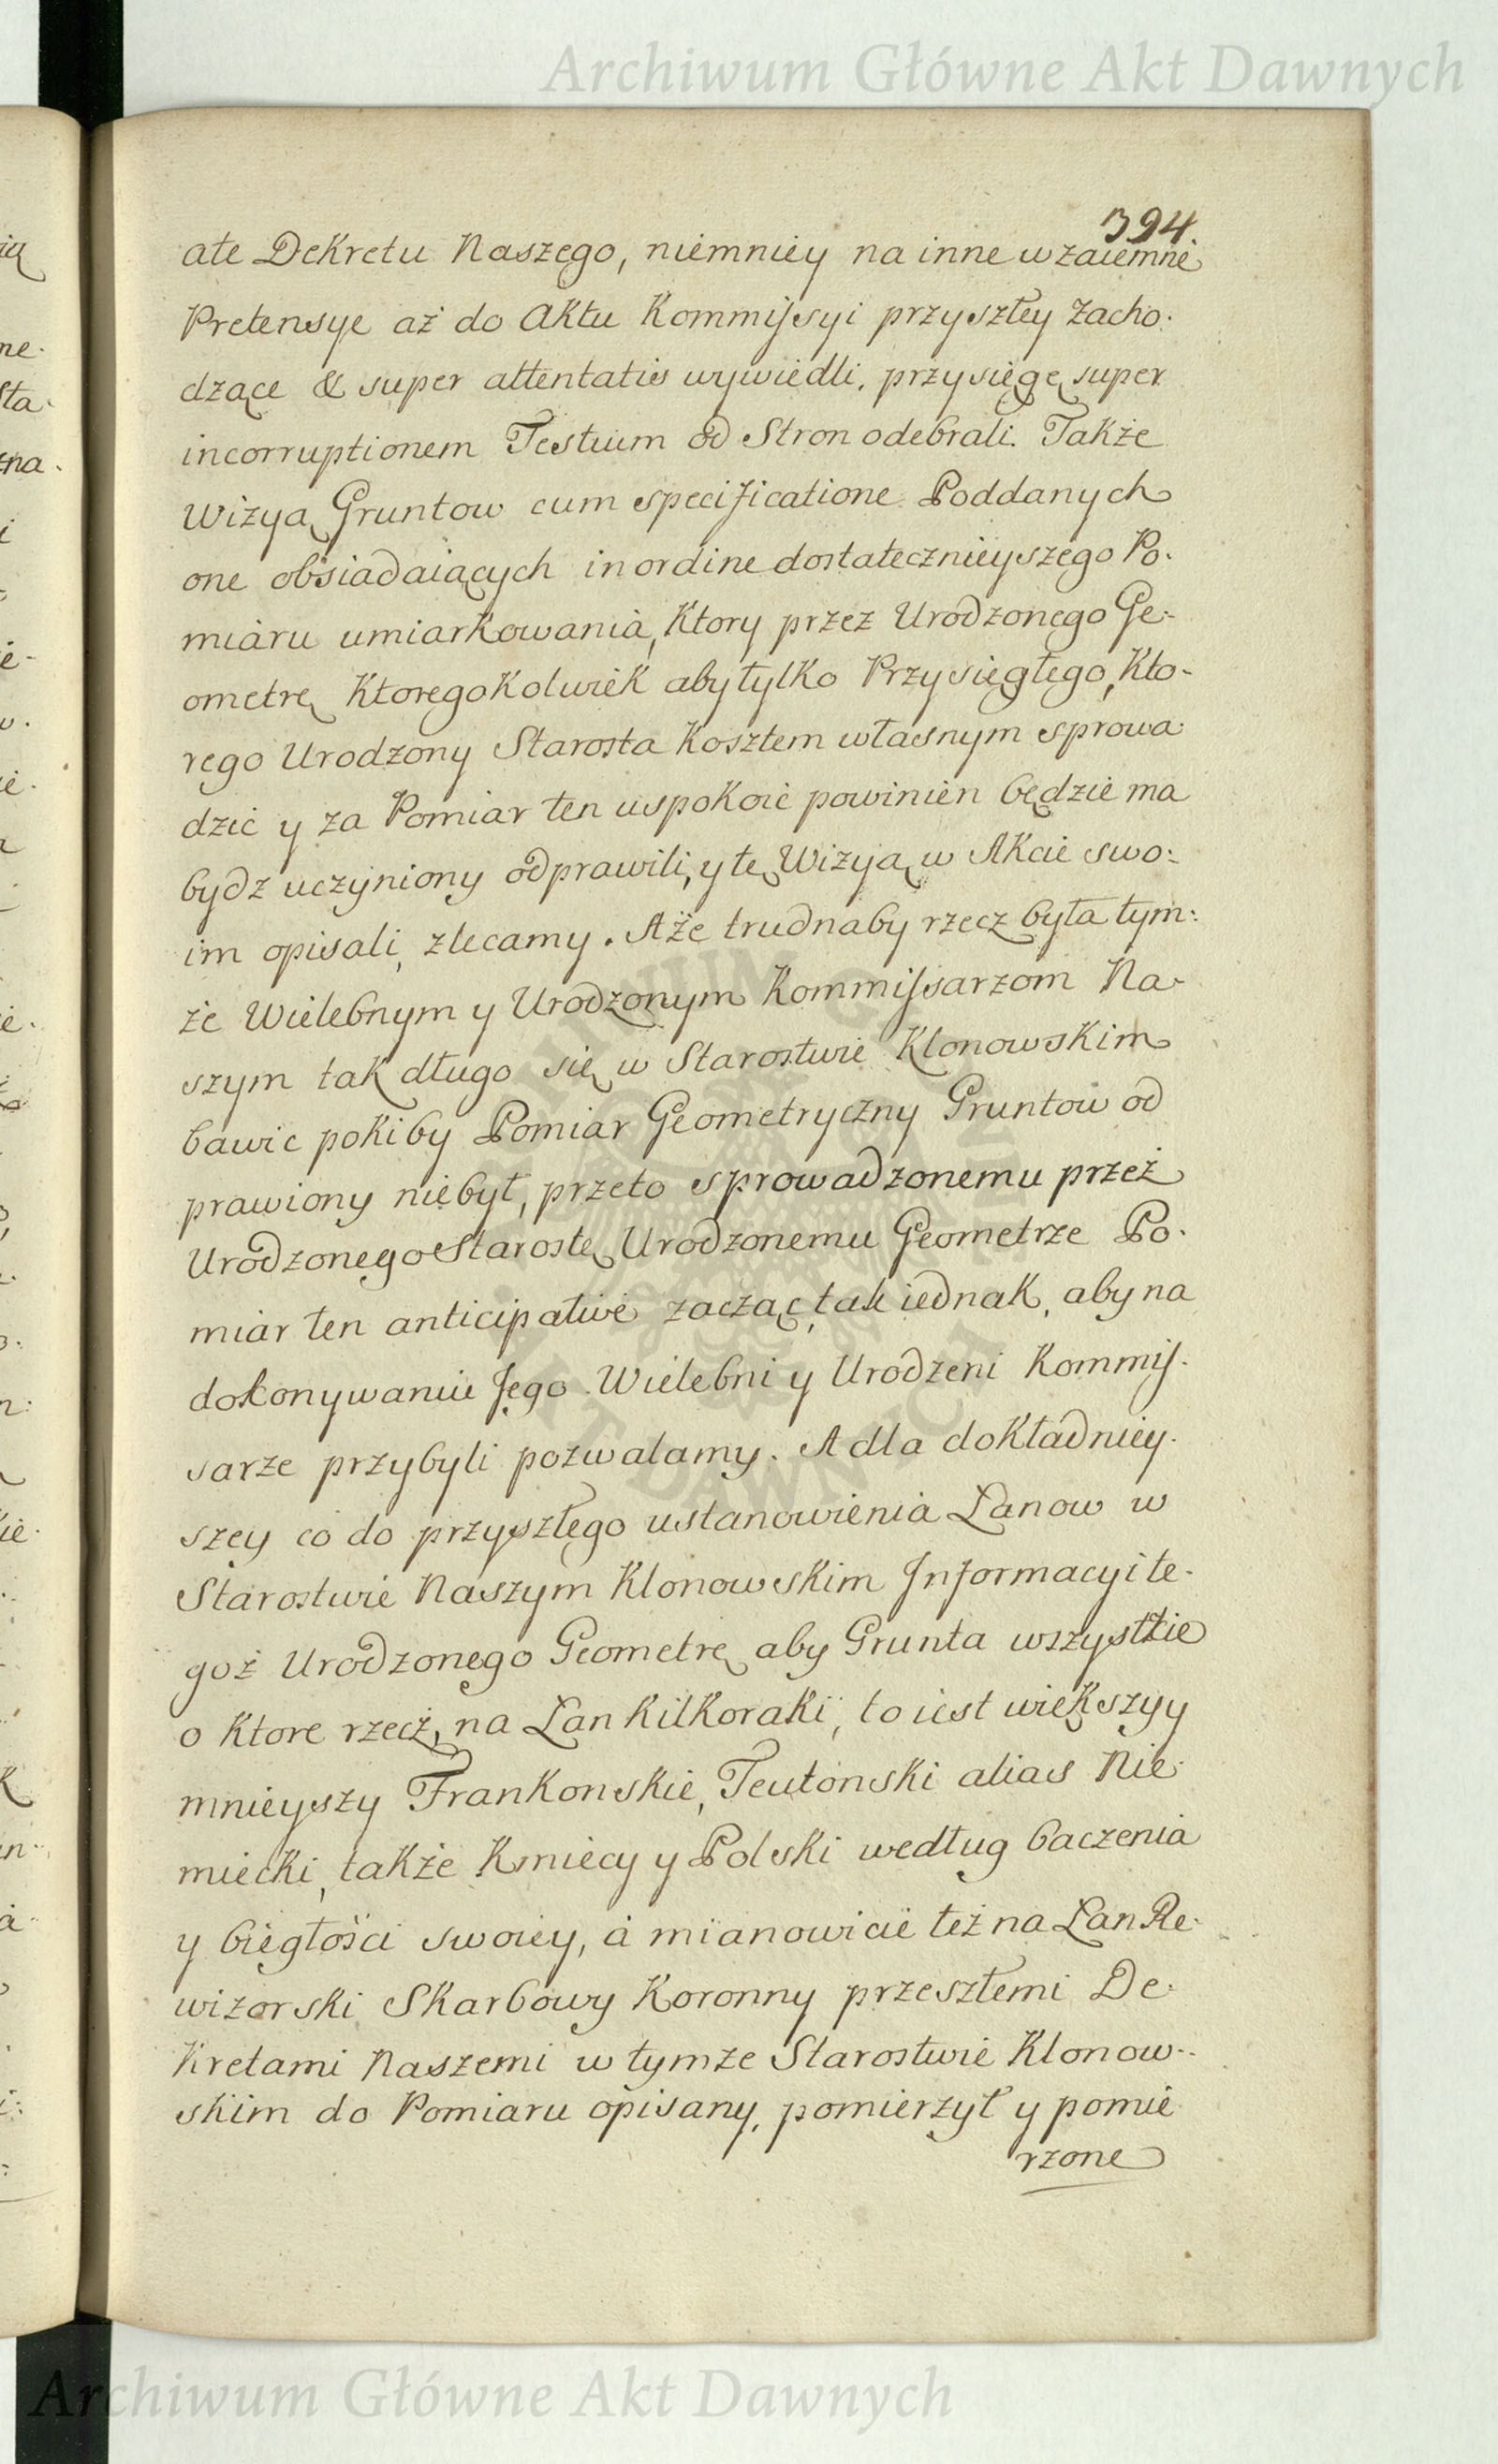 Archiwum Główne Akt Dawnych
394.
ate Dekretu Naszego, niemniey na inne wzaiemne
Pretensye aż do Aktu Kommissyi przyszłey zacho.
dzące & super attentatis wywiedli, przysięgę super
incorruptionem Testium od Stron odebrali. Także
Wizyą Gruntow cum specificatione Poddanych
one obsiadaiących in ordine dostatecznieyszego Po.
miaru umiarkowania, Ktory przez Urodzonego Ge-
ometrę Ktoregokolwiek aby tylko Przysięgłego, Kto-
rego Urodzony Starosta Kosztem własnym sprowa
dzić y za Pomiar ten uspokoić powinien będzie ma
bydz uczyniony odprawili, y tę Wizyą w Akcie swo:
im opisali, zlecamy. A że trudnaby rzecz była tym:
że Wielebnym y Urodzonym Kommissarzom Na-
szym tak długo się w Starostwie Klonowskim
bawić poki by Pomiar Geometryczny Gruntow od
prawiony niebył, przeto sprowadzonemu przez
Urodzonego Starostę Urodzonemu Geometrze Po.
miar ten anticipative zacząć, tak iednak, aby na
dokonywaniu Jego Wielebni y Urodzeni Kommis.
sarze przybyli pozwalamy. A dla dokładniey.
szey co do przyszłego ustanowienia Łanow w
Starostwie Naszym Klonowskim Informacyi te.
goż Urodzonego Geometrę aby Grunta wszystkie
o Ktore rzecz, na Łan Kilkoraki, to iest większy y
mnieyszy Frankonskie, Teutonski alias Nie:
miecki, także Kmiecy y Polski według baczenia
y biegłości swoiey, á mianowicie też na Łan Re.
wizorski Skarbowy Koronny przeszłemi De.
Kretami Naszemi w tymże Starostwie Klonow..
skim do Pomiaru opisany, pomierzył y pomie
rzone
Archiwum Główne Akt Dawnych